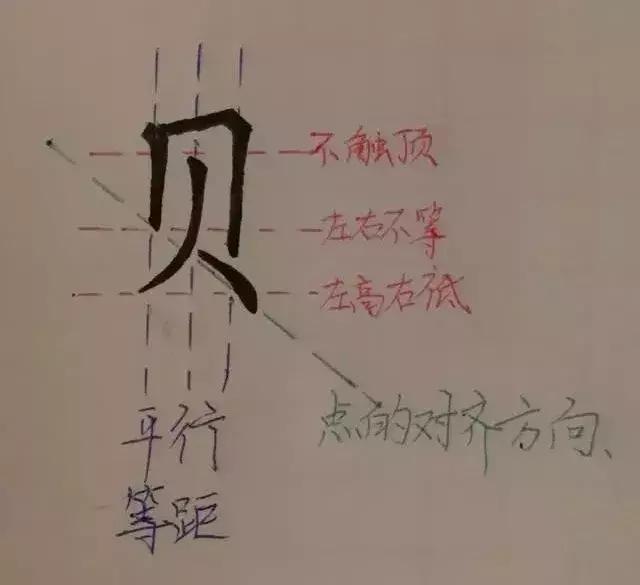 贝
不触顶
左右不等
左高右低
点的对齐方向、
平行
等距